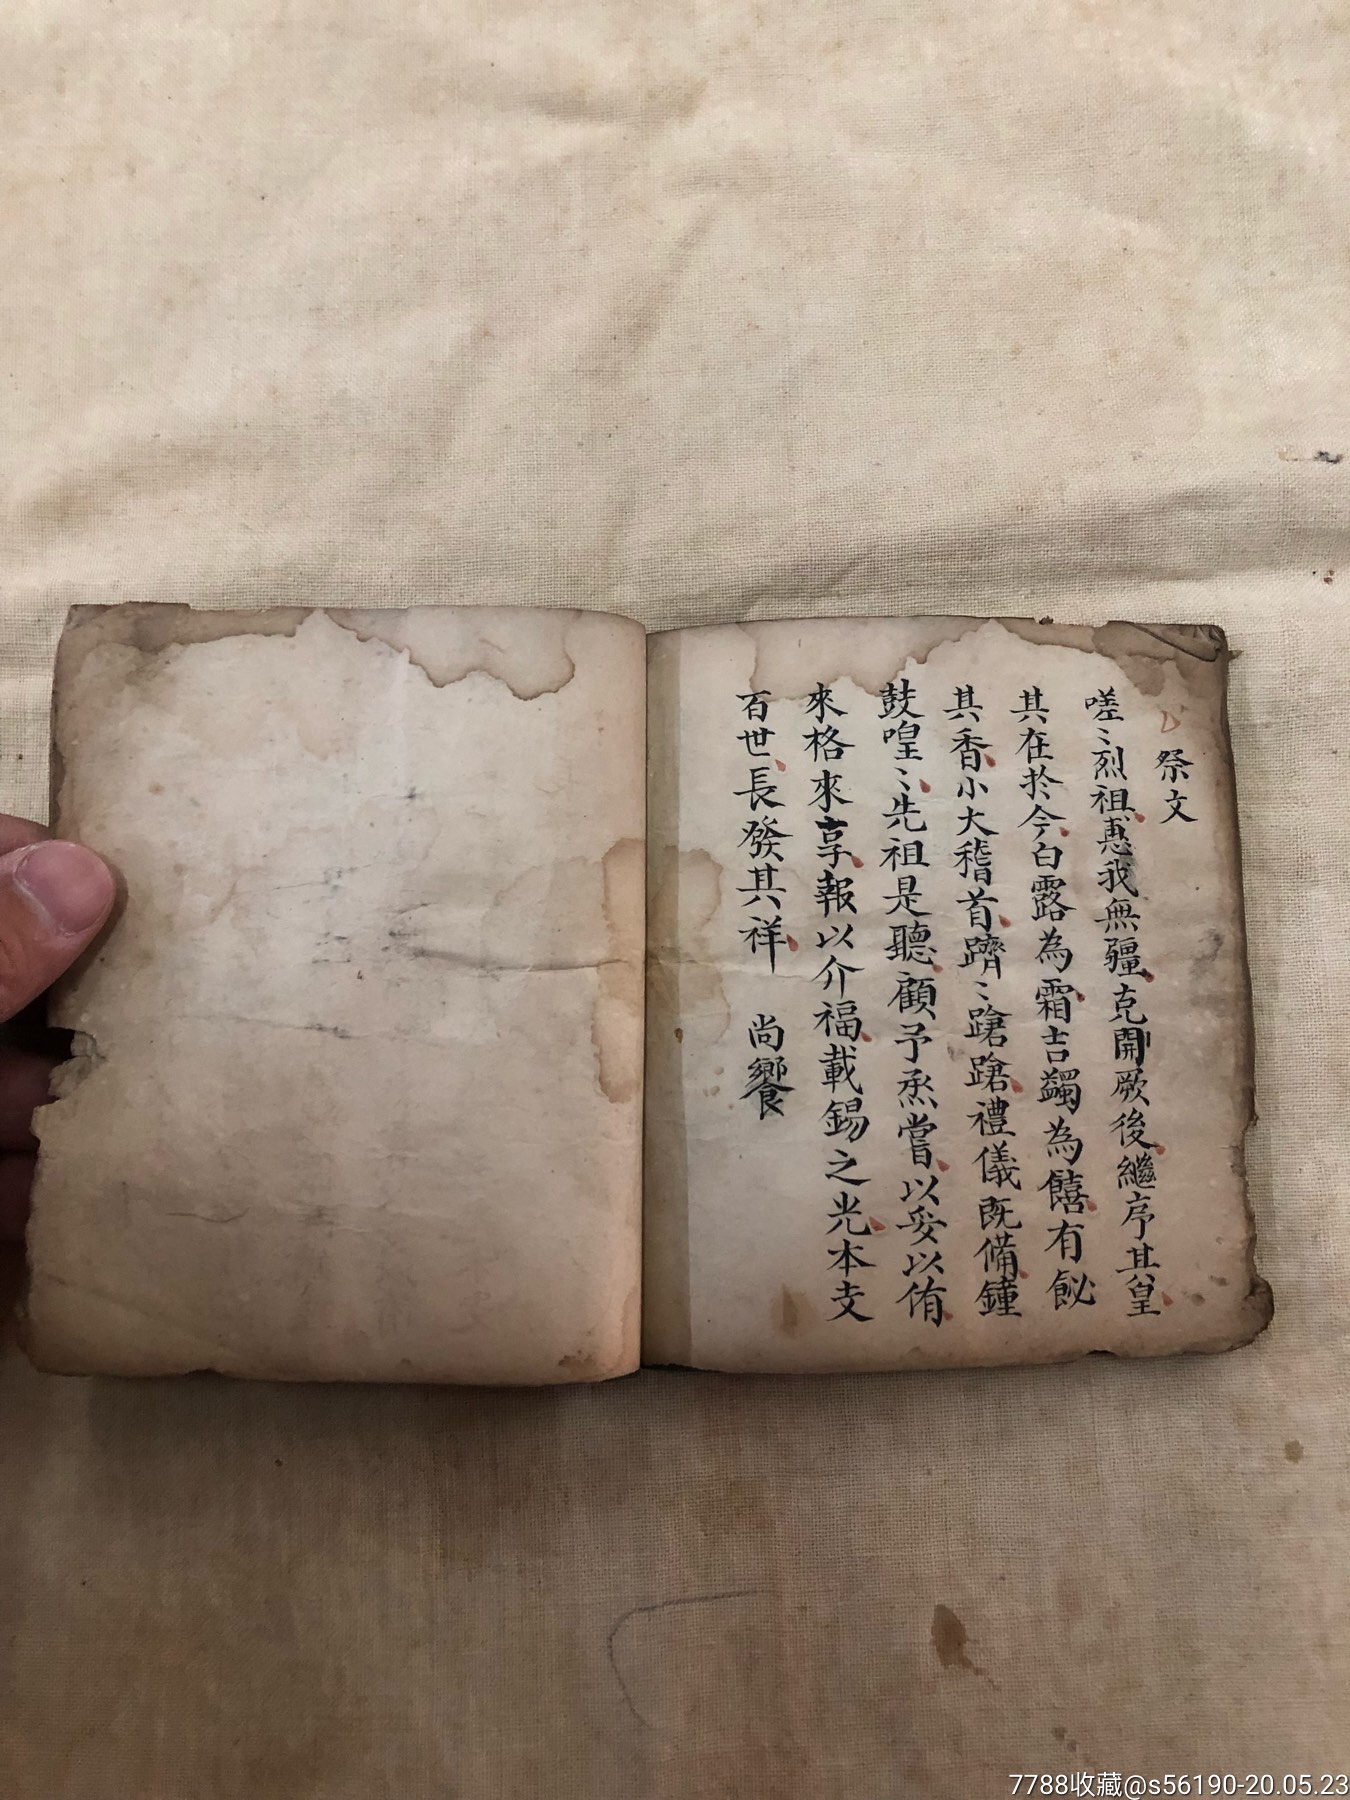 祭文
嗟〻烈祖惠我無疆克開厥後繼序其皇
其在於今白露為霜吉蠲為饎有飶
其香小大稽首躋〻蹌蹌禮儀既備鐘
鼓喤〻先祖是聽顧予烝嘗以妥以侑
來格來享報以介福載錫之光本支
百世長發其祥　尚饗
7788收藏@s56190-20.05.23